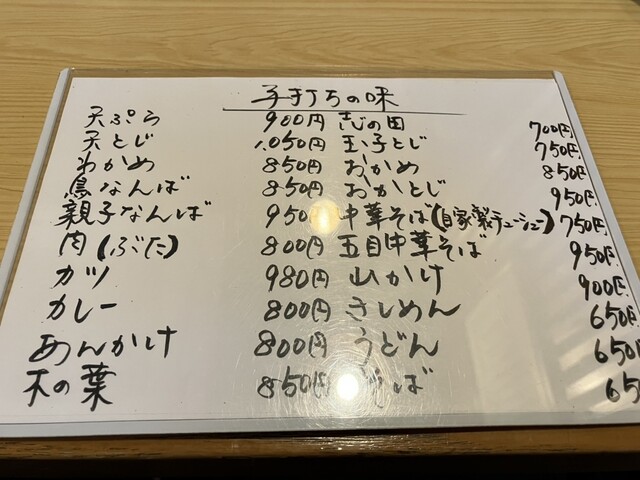 手打ちの味
天ぷら 900円 志の田 700円
天とじ 1,050円 玉子とじ 750円
わかめ 850円 おかめ 850円
鳥なんば 850円 おかとじ 950円
親子なんば 950円 中華そば(自家製チューシュー) 750円
肉(ぶた) 800円 五目中華そば 950円
カツ 980円 山かけ 900円
カレー 800円 きしめん 650円
あんかけ 800円 うどん 650円
木の葉 850円 そば